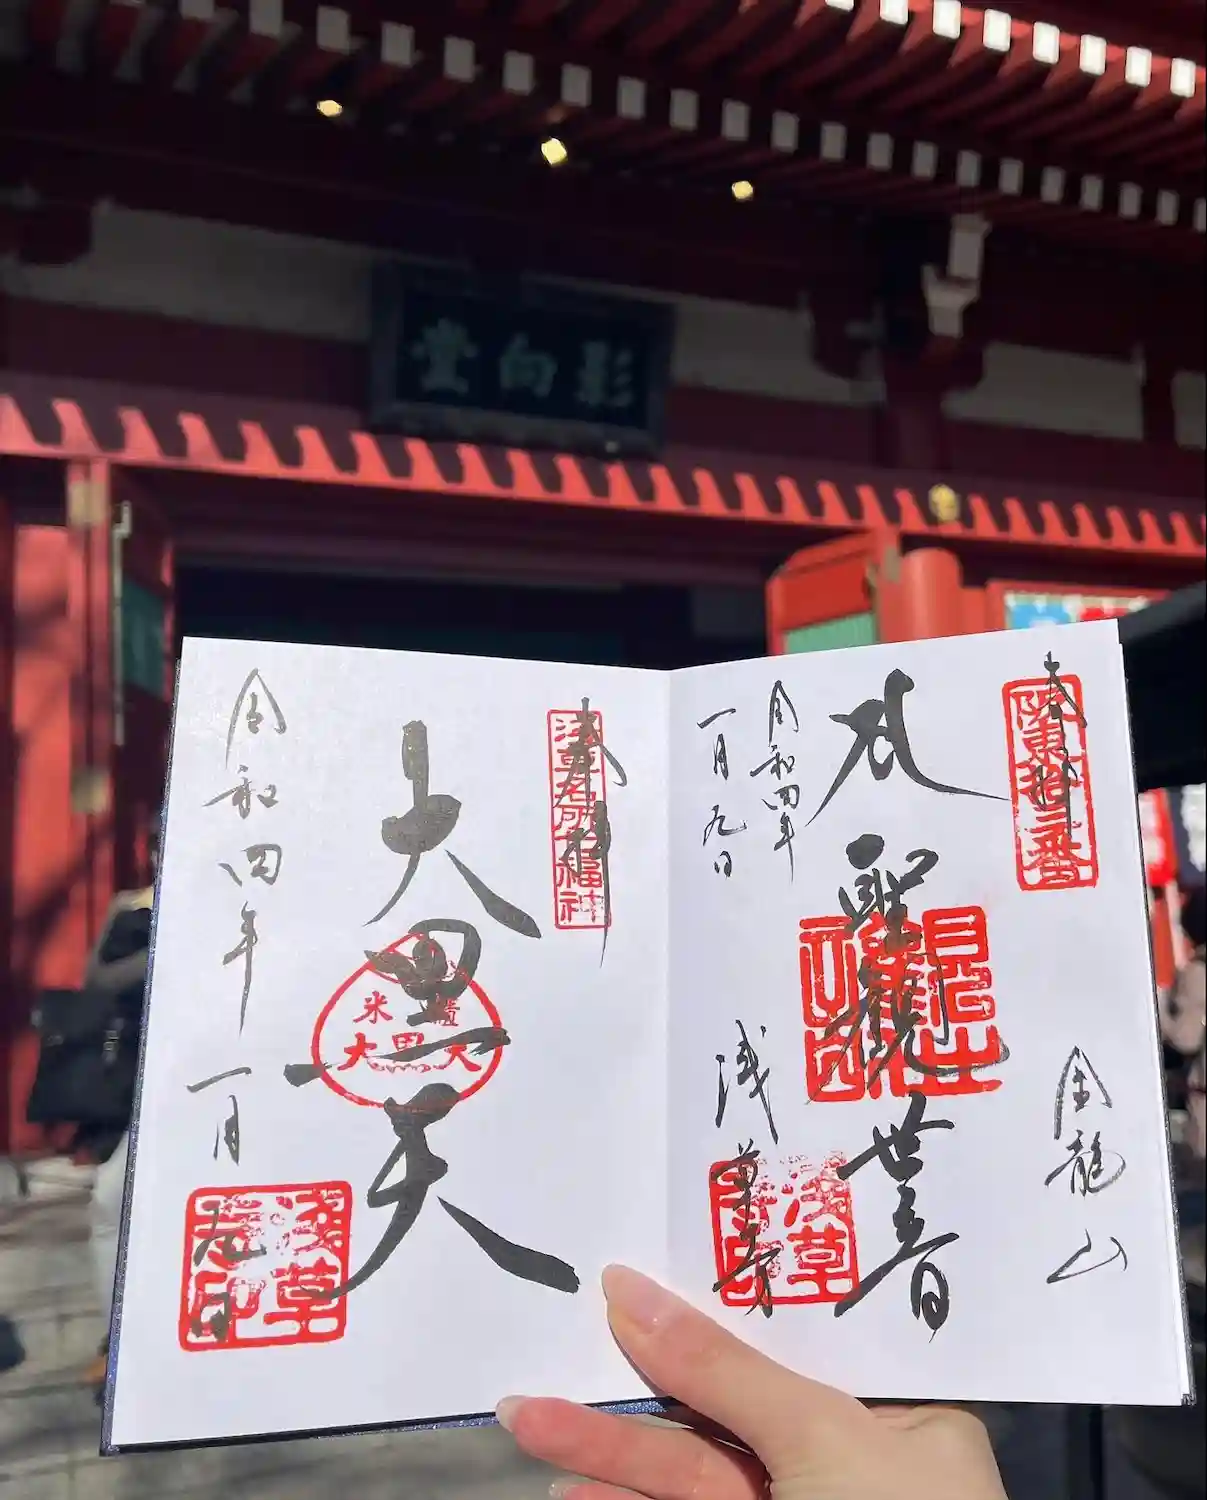 影向堂
奉拝
坂東拾三番
金龍山
聖観世音
浅草寺
令和四年
一月九日
浅草寺印
奉拝
浅草名所七福神
大黒天
米櫃
大黒天
令和四年一月九日
浅草寺印